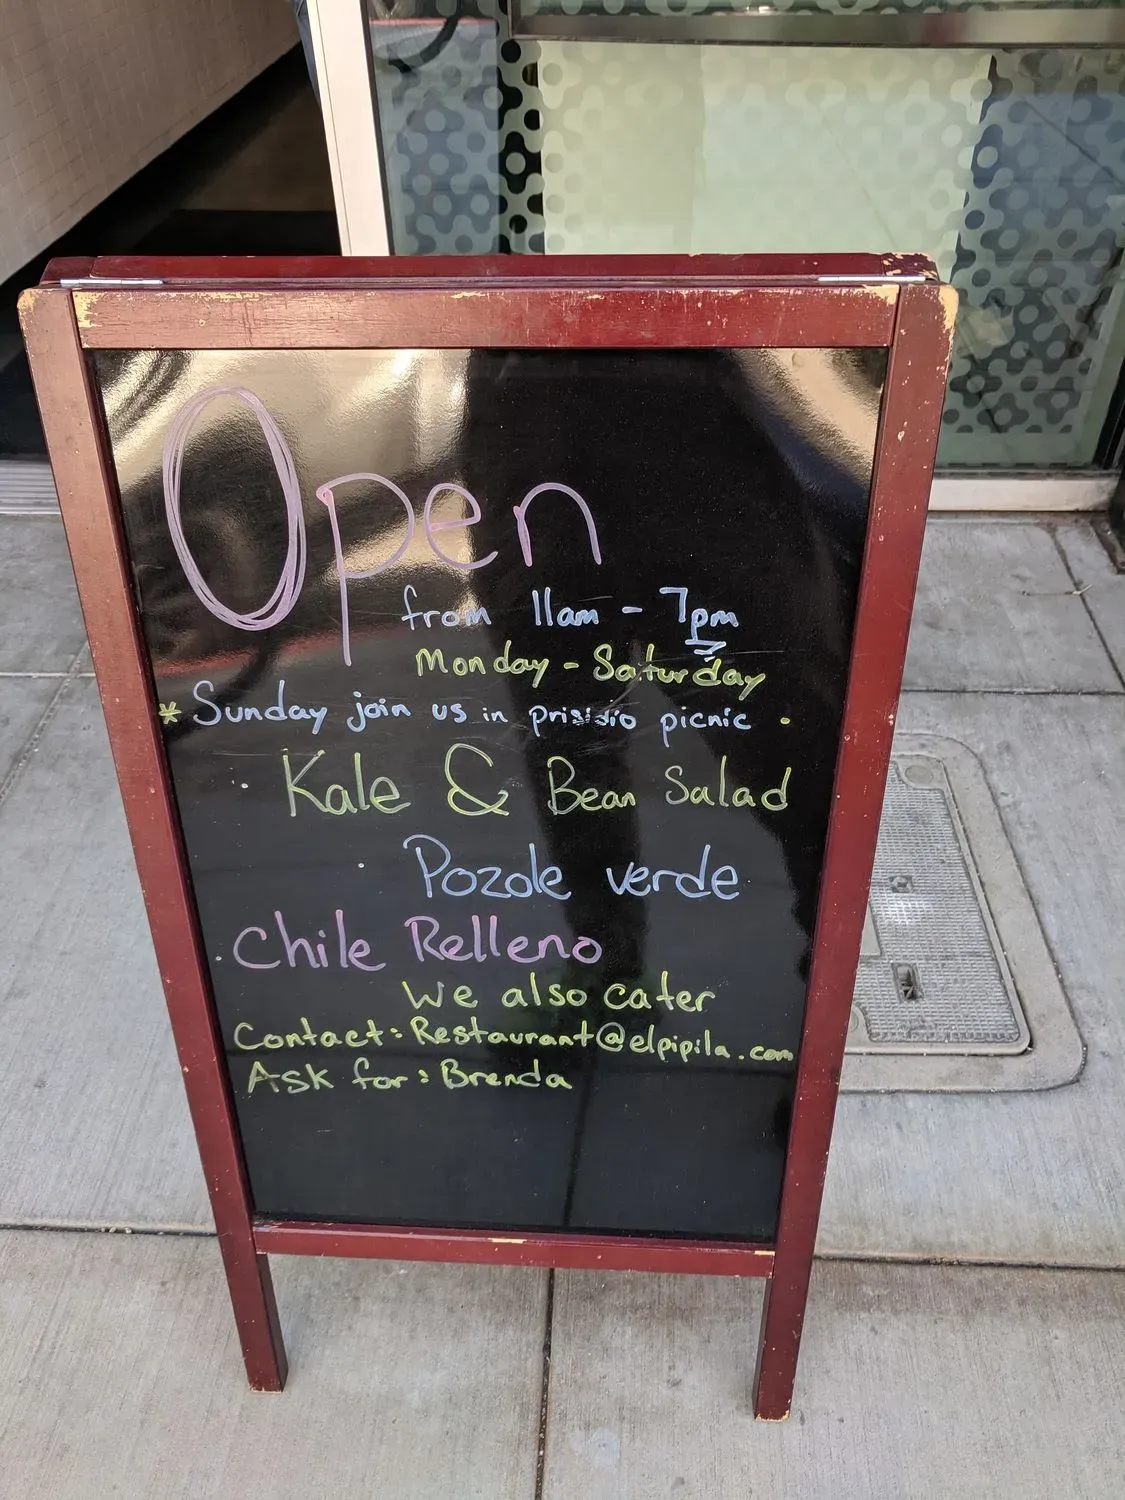 Open
from 11am - 7pm
Monday - Saturday
* Sunday join us in prisidio picnic .
Kale & Bean Salad
Pozole verde
Chile Relleno
We also cater
Contact: Restaurant@elpipila.com
Ask for: Brenda